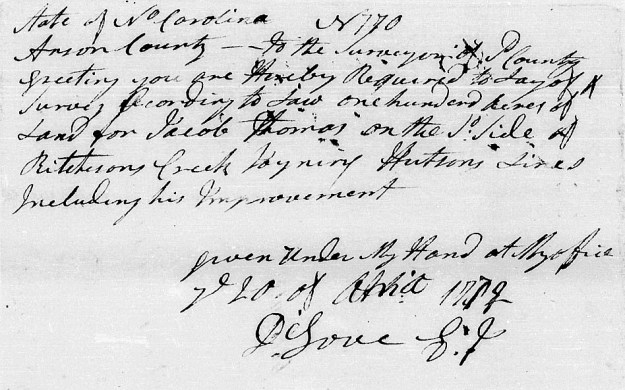 State of No Carolina N 170
Anson County — To the Surveyor of Sd County
Greeting you are Hereby Required to Lay of &
Survey According to Law one hundred Acres of
Land for Jacob Thomas on the So. Side of
Ritchesons Creek Joyning Hutsons Lines
Including his Improvement
given Under My Hand at My office
ye 20 of